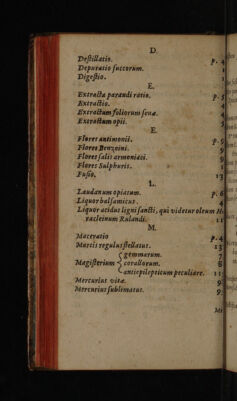 D.
Destillatio. p. 4
Depuratio succorum. 1
Digestio. 1
E.
Extracta parandi ratio. p. 5
Extractio. 4
Extractum foliorum senæ. 4
Extractum opii. 5
E.
Flores antimonii. p. 9
Flores Benzoini. 9
Flores salis armoniaci. 9
Flores Sulphuris. 8
Fusio. 13
L.
Laudanum opiatum. p. 6
Liquor balsamicus. 4
Liquor acidus ligni sancti, qui videtur oleum H-
racleinum Rulandi. 11
M.
Maceratio p. 4
Martis regulus stellatus. 13
gemmarum. 7
Magisterium corallorum. 8
antiepilepticum peculiare. 11
Mercurius vitæ. 9
Mercurius sublimatus. 9
Me